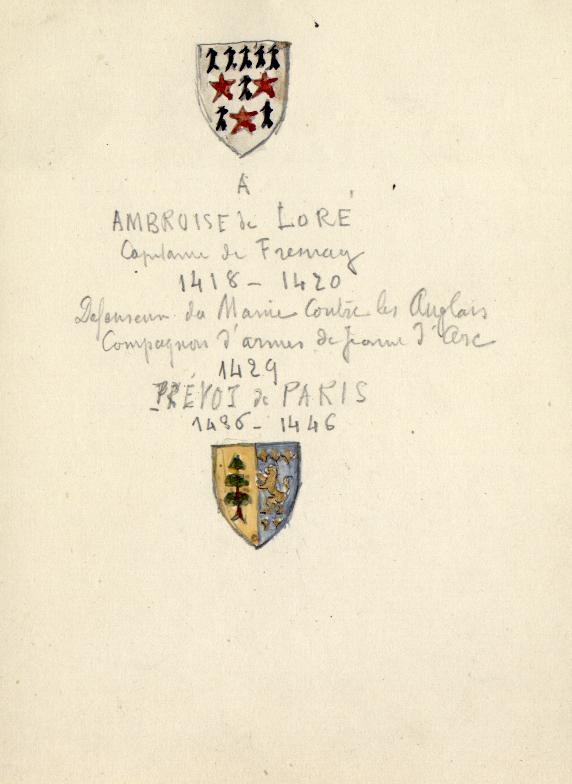 A
AMBROISE de LORÉ
Capitaine de Fresnay
1418 - 1420
Defenseur du Maine Contre les Anglais
Compagnon d'armes de Jeanne d'Arc
1429
PRÉVOT de PARIS
1436 - 1446